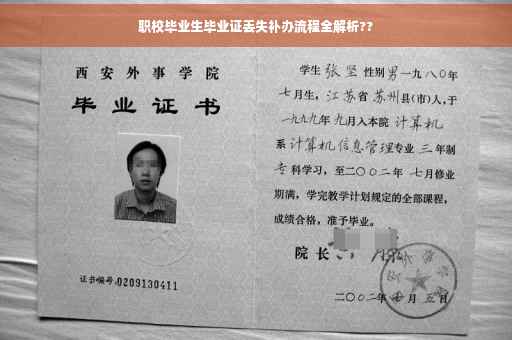 职校毕业生毕业证丢失补办流程全解析??
西安外事学院
毕业证书
证书编号:0209130411
学生 张坚 性别 男 一九八〇年
七月生，江苏省 苏州 县(市)人，于
一九九九年 九月入本院 计算机
系 计算机信息管理专业 三 年制
专科学习，至二〇〇二年 七月修业
期满，学完教学计划规定的全部课程，
成绩合格，准予毕业。
院 长
二〇〇二年 月 五日